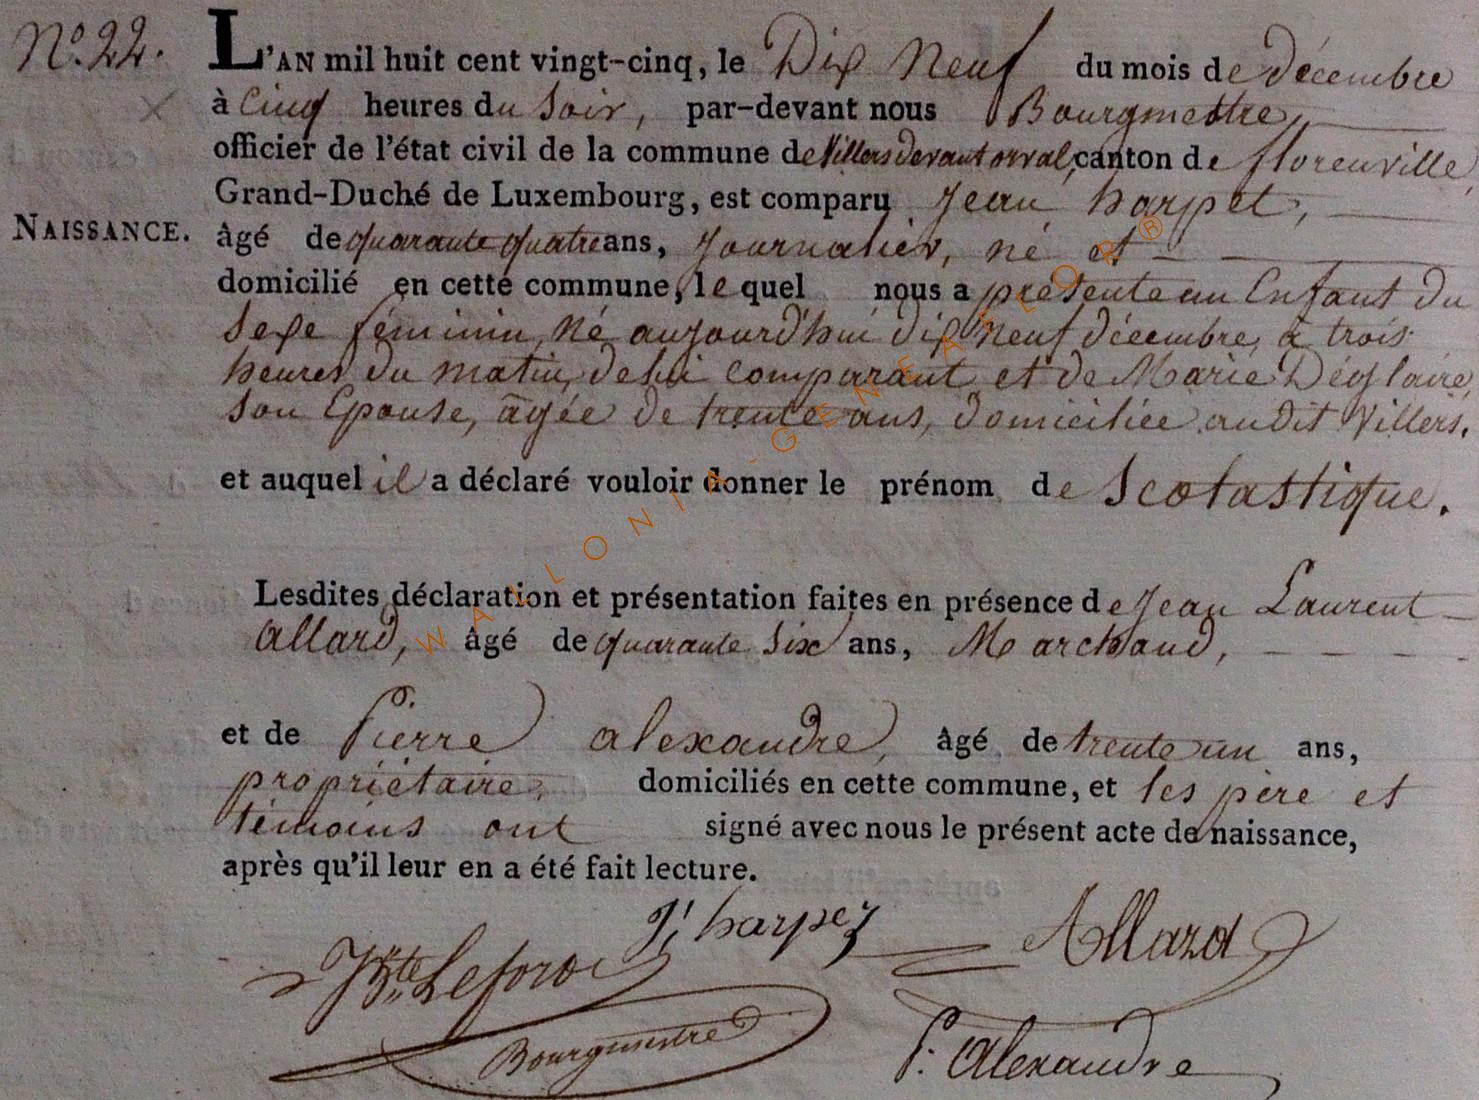 N.° 22.
L'AN mil huit cent vingt-cinq, le Dix Neuf du mois de décembre
à Cinq heures du Soir, par-devant nous Bourgmestre,
officier de l'état civil de la commune de Villers devant orval, canton de florenville,
Grand-Duché de Luxembourg, est comparu Jean harpet,
NAISSANCE.
âgé de quarante quatre ans, Journalier, né et
domicilié en cette commune, le quel nous a présenté un Enfant du
Sexe féminin, Né aujourd'hui dix neuf décembre, à trois
heures du matin, de lui Comparant et de Marie Déglaire,
son Epouse, agée de trente ans, domiciliée audit Villers.
et auquel il a déclaré vouloir donner le prénom de Scolastique.
Lesdites déclaration et présentation faites en présence de Jean Laurent
allard, âgé de quarante Six ans, Marchand,
et de Pierre alexandre, âgé de trente un ans,
propriétaire, domiciliés en cette commune, et les père et
témoins ont signé avec nous le présent acte de naissance,
après qu'il leur en a été fait lecture.
J: harpez
Allard
J Bte Leford
Bourgmestre
P: Alexandre
WALLONIA-GENEALOR®